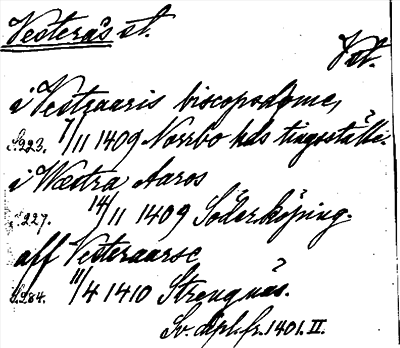 Vesterås st.
Vstm.
i Vestraaris biscopsdøme,
S. 223. 7/11 1409 Norrbo hds tingsställe.
i Wæstra Aaros
S. 227. 14/11 1409 Söderköping.
aff Vesteraarsc
S. 284. 11/4 1410 Strengnäs.
Sv. dipl. fr. 1401. II.